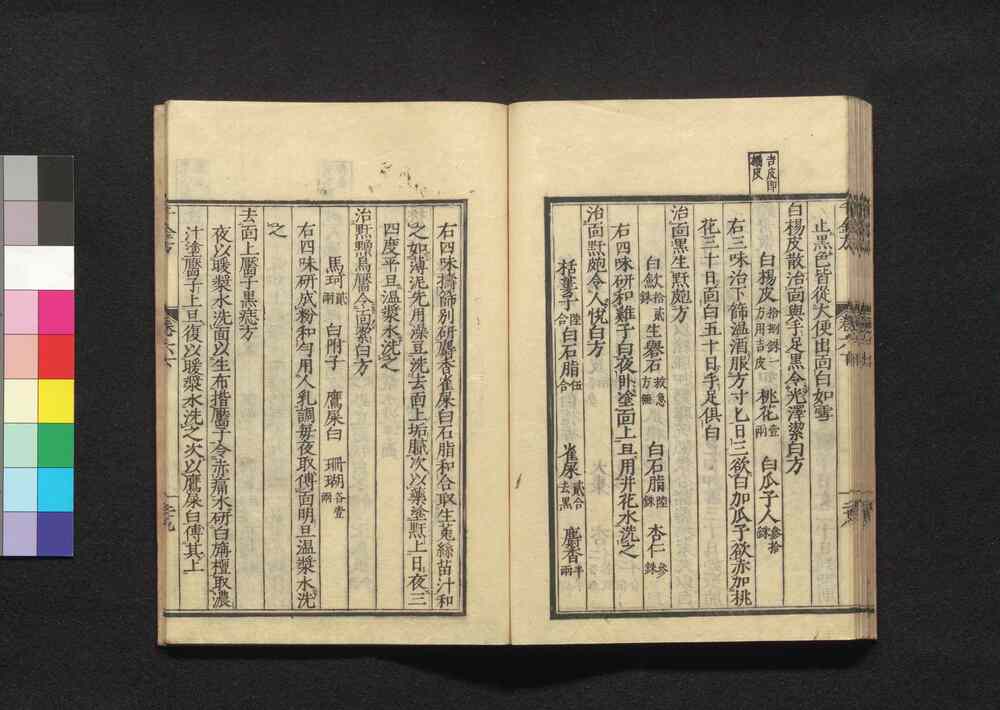 吉皮即
橘皮
止黒色皆從大便出面白如雪
白楊皮散治面與手足黒令光澤潔白方
白楊皮拾捌銖一方用吉皮 桃花壹兩 白瓜子人叁拾銖
右三味治下篩温酒服方寸匕日三欲白加瓜子欲赤加桃
花三十日面白五十日手足俱白
治面黒生䵟皰方
白歛拾貳銖 生礜石救急方無 白石脂陸銖 杏仁叁銖
右四味研和雞子白夜卧塗面上旦用井花水洗之
治面䵟皰令人悦白方
栝蔞子陸合 白石脂伍合 雀屎貳合去黒 麝香半兩
右四味擣篩别研麝香雀屎白石脂和合取生菟絲苗汁和
之如薄泥先用澡豆洗去面上垢膩次以藥塗䵟上日夜三
四度平旦温漿水洗之
治䵟䵳烏靨令面潔白方
馬珂貳兩 白附子 鷹屎白 珊瑚各壹兩
右四味研成粉和勻用人乳調每夜取傅面明旦温漿水洗
之
去面上靨子黒痣方
夜以暖漿水洗面以生布揩靨子令赤痛水研白旃檀取濃
汁塗靨子上旦復以暖漿水洗之次以鷹屎白傅其上